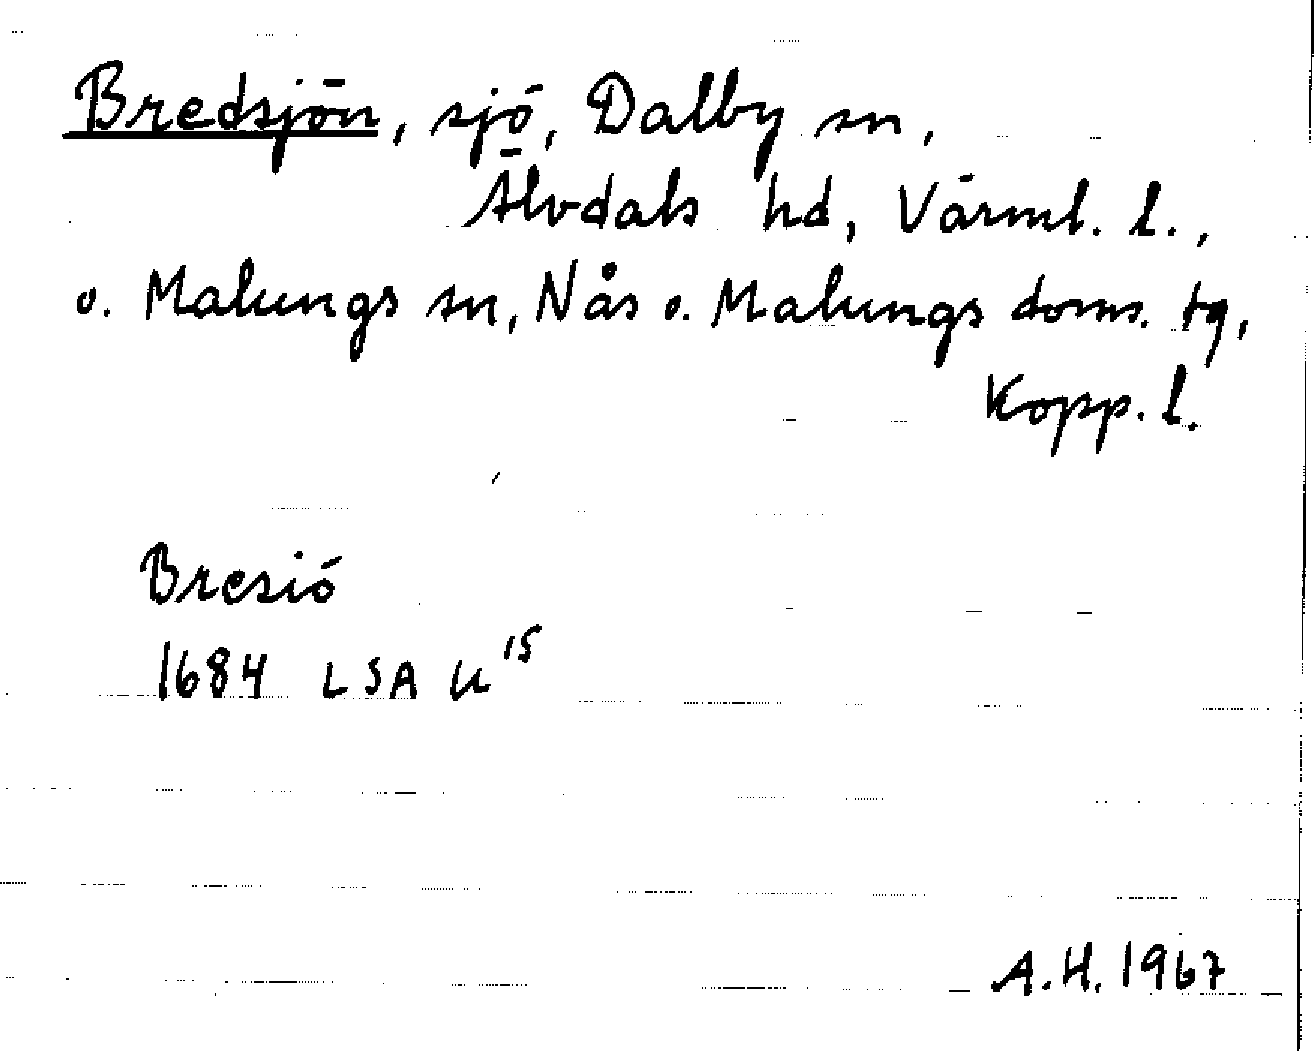 Bredsjön, sjö, Dalby sn,
Älvdals hd, Värml. l.,
o. Malungs sn, Nås o. Malungs doms. tg,
Kopp. l.
Bresiö
1684 LSA U 15
A.H. 1967